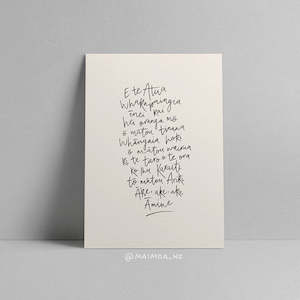 E te Atua
Whakapaingia
ēnei kai
hei oranga mō
ō mātou tinana
Whāngaia hoki
ō mātou wairua
ki te taro o te ora
Ko Ihu Karaiti
tō mātou Ariki
Āke, ake, ake
Āmine
@MAIMOA_NZ